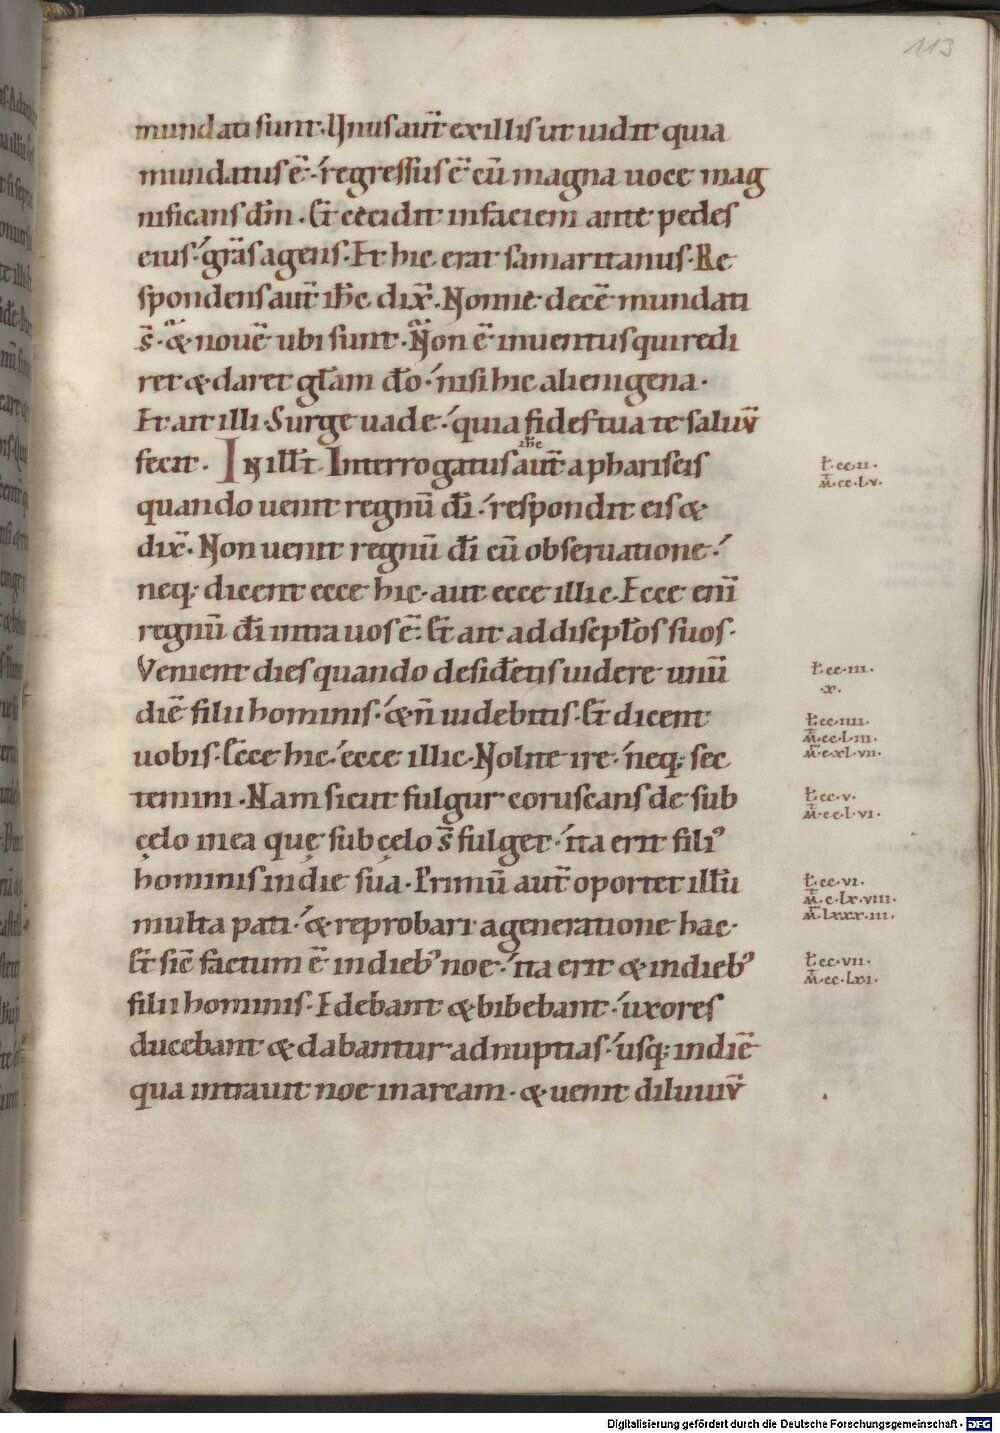 113
mundati sunt. Unus aut̄ ex illis ut uidit quia
mundatus ē. regressus ē cū magna uoce mag
nificans dm̄. Et cecidit in faciem ante pedes
eius. grās agens. Et hic erat samaritanus. Re
spondens aut̄ ihc̄ dix̄. Nonne decē mundati
s̄. & nouē ubi sunt. Non ē inuentus qui redi
ret & daret glām dō. nisi hic alienigena.
Et ait illi. Surge uade. quia fides tua te saluū
fecit. IN ill̄t. Interrogatus aut̄ ihc̄ a phariseis
quando uenit regnū dī. respondit eis &
dix̄. Non uenit regnū dī cū obseruatione.
neq; dicent ecce hic. aut ecce illic. Ecce enī
regnū dī intra uos ē. Et ait ad discpl̄os suos.
Venient dies quando desidetis uidere unū
diē filii hominis. & n̄ uidebitis. Et dicent
uobis. Ecce hic. ecce illic. Nolite ire. neq; sec
temini. Nam sicut fulgur coruscans de sub
cęlo in ea quę sub cęlo s̄ fulget. ita erit fili᾽
hominis in die sua. Primū aut̄ oportet illū
multa pati. & reprobari a generatione hac.
Et sic̄ factum ē in dieb᾽ noe. ita erit & in dieb᾽
filii hominis. Edebant & bibebant. uxores
ducebant & dabantur ad nuptias. usq; in diē
qua intrauit noe in arcam. & uenit diluuiū
L̄.cc.ii.
M̄.cc.l.v.
L̄.cc.iii.
.x.
L̄.cc.iiii.
M̄.cc.l.iii.
M̄.c.xl.vii.
L̄.cc.v.
M̄.cc.l.vi.
L̄.cc.vi.
M̄.c.lx.viii.
M̄.lxxx.iii.
L̄.cc.vii.
M̄.cc.lxi.
Digitalisierung gefördert durch die Deutsche Forschungsgemeinschaft - DFG